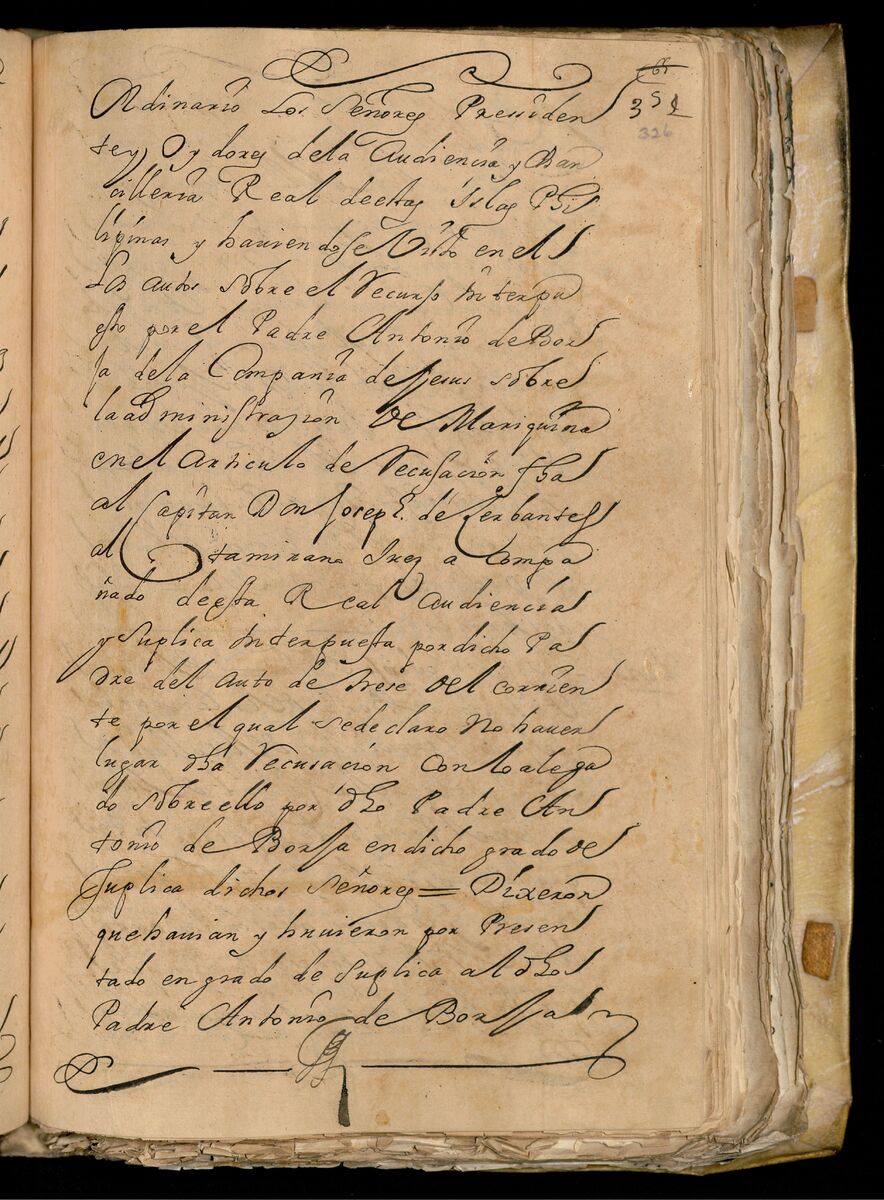 351
326
Ordinario Los Señores Presiden
te y Oydores dela Audiencia y Chan
cilleria Real destas Yslas Phi
lipinas y haviendose Visto en el
Los autos sobre el Recurso Interpu
esto por el Padre Antonio de Bor
ja dela Compania de Jesus sobre
la administrazion de Mariquina
en el articulo de Recusacion fha
al Capitan Don Joseph de Cerbantes
al tamirano Juez a Compa
ñado de esta Real Audiencia
y Suplica Interpuesta por dicho Pa
dre del auto de trese del corrien
te por el qual se declaro No haver
lugar dha Recusacion Con lo alega
do sobre ello por dho Padre An
tonio de Borja en dicho grado de
Suplica dichos Señores = Dixeron
que havian y huvieron por Presen
tado en grado de suplica al dho
Padre Antonio de Borja